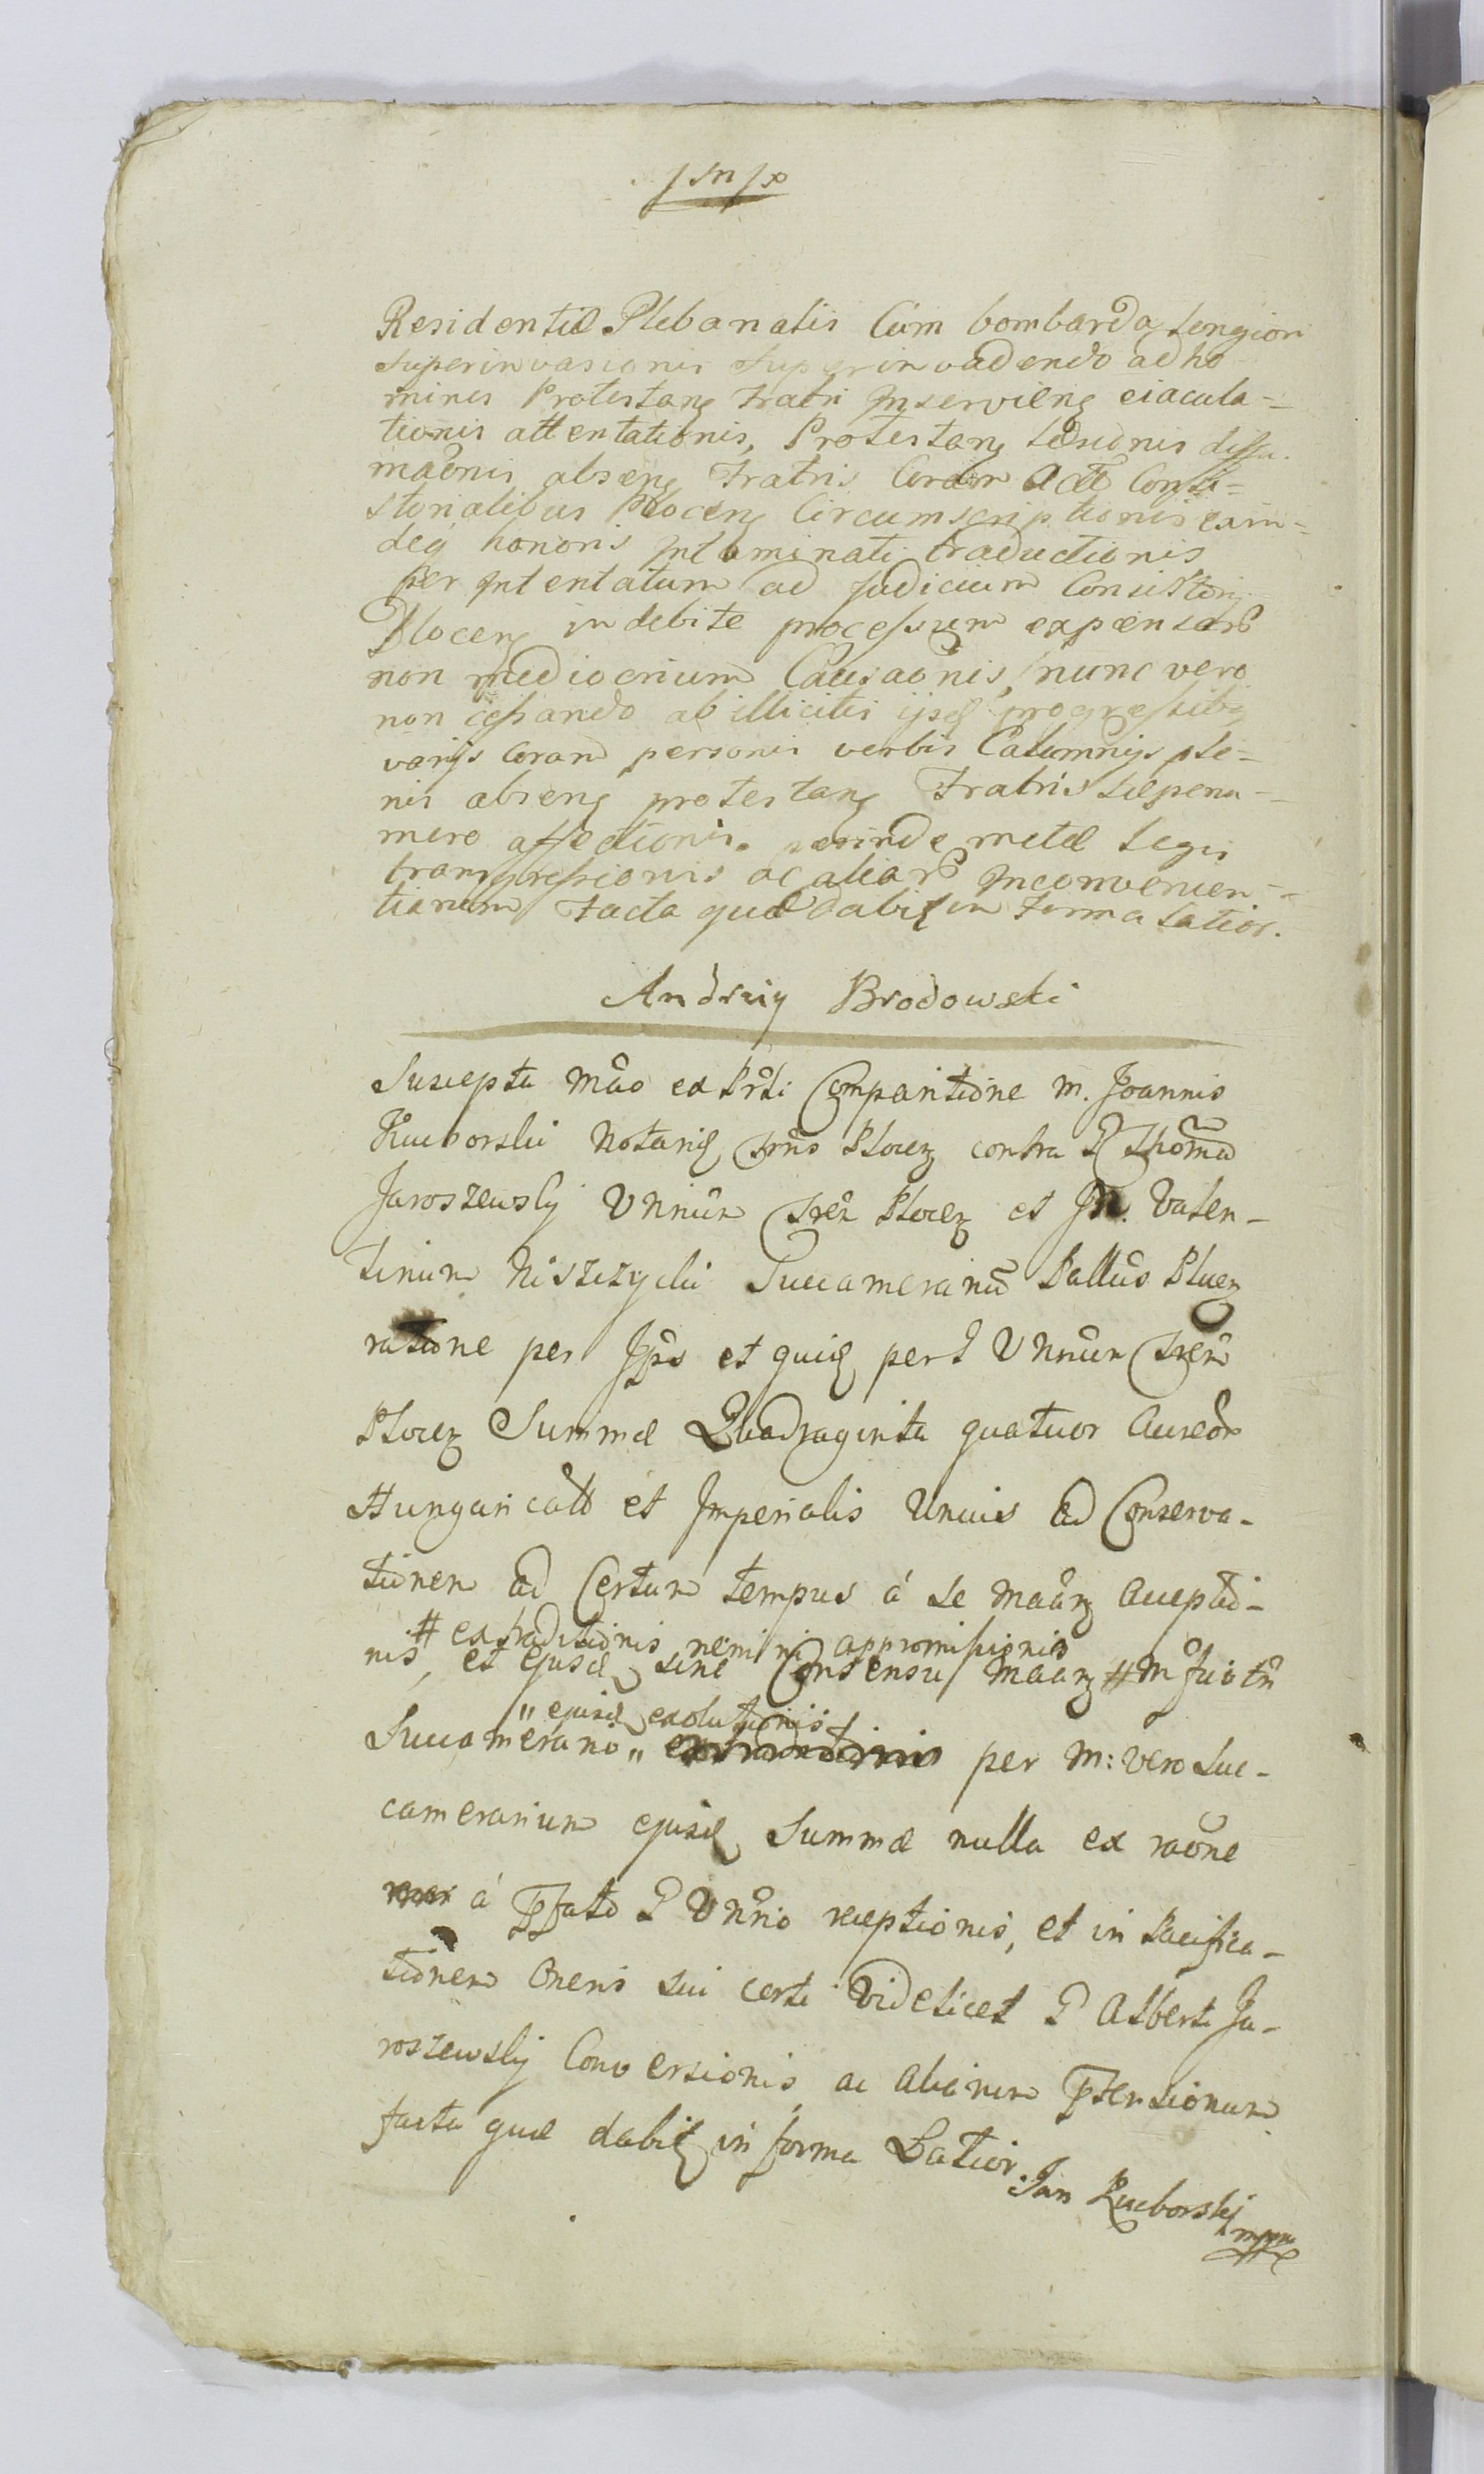 Residentiæ Plebanalis Cum bombarda Longiori
superinvasionis superinvadendo ad ho
mines Protestanŧ Fratri Inservienŧ eiacula=
tionis attentationis, Protestanŧ Læsionis diffa.
maonis absenŧ Fratris Coram Actis Consi=
storialibus Plocenŧ Circumscriptionis eam=
deq honoris Intaminati traductionis
per Intentatum ad Judicium Consistorij
Plocenŧ indebite processum expensarum
non mediocrium Causaonis, nunc vero
non cessando ab illicitis ijsq progressibq
varijs Coram personis verbis Calumnijs ple=
nis absenŧ protestanŧ Fratris sæpenu=
mero affectionis. perinde metæ Legis
transgressionis ac aliarum Inconvenien=
tiarum Facta quæ dabiŧ in Forma Latior.
Andrzey Brodowski
Suscepta Mão ex Prãti Comparitione M. Joannis
Kucborski Notarij Plocenŧ contra G Thomã
Jaroszewskj Plocenŧ et M. Valen-
tinum Niszczycki Succamerariũ Pallũs Plocenŧ
ratione per et per G
Plocenŧ Summæ Quadraginta quatuor Aureor
Hungaricall et Imperialis Unius ad Conserva-
tionem ad Certum tempus á se Maãnŧ Accepta͠o-
# extraditionis nemini appromissionis
nis, et ejusd sine Consensu Maãnŧ # M
" ejusd exolutionis
Succamerario " per M: vero Suc-
camerarium ejusd Summæ nulla ex raõne
á Pfato G receptionis, et in Pacifica-
tionem Oneris sui certi Videlicet G Alberti Ja-
roszewskj Conversionis ac aliarum Ptensionum
facta quæ dabiŧ in forma Latior.
Jan Kucborskj
mppa